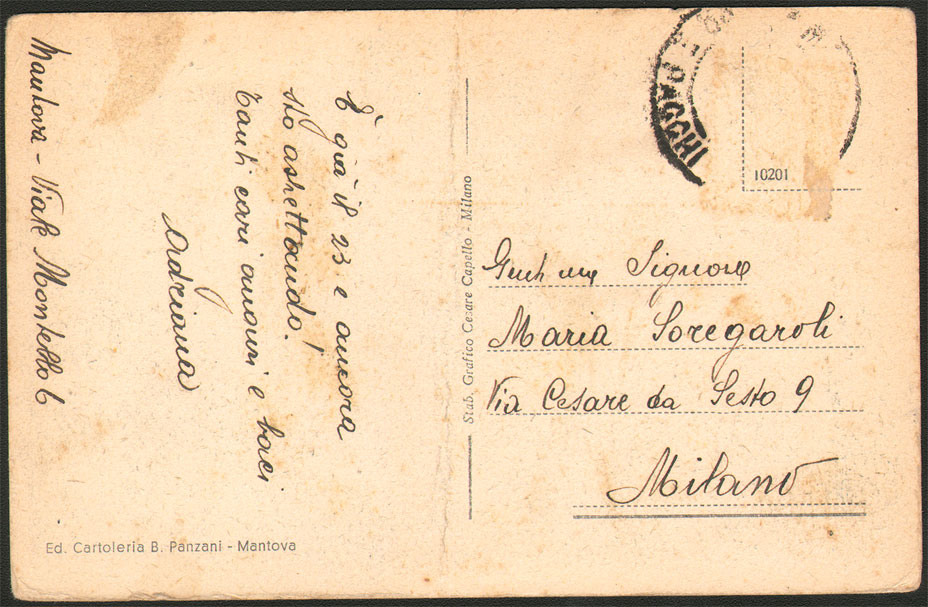 Mantova - Viale Montello 6
È già il 23 e ancora
sto aspettando!
Tanti cari auguri e baci
Adriana
Stab. Grafico Cesare Capello - Milano
10201
Signora
Maria Soregaroli
Via Cesare da Sesto 9
Milano
Ed. Cartoleria B. Panzani - Mantova